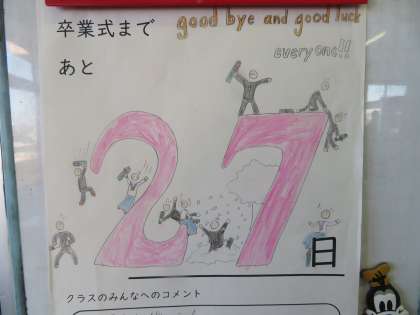 卒業式まで
good bye and good luck
everyone!!
あと
27日
クラスのみんなへのコメント